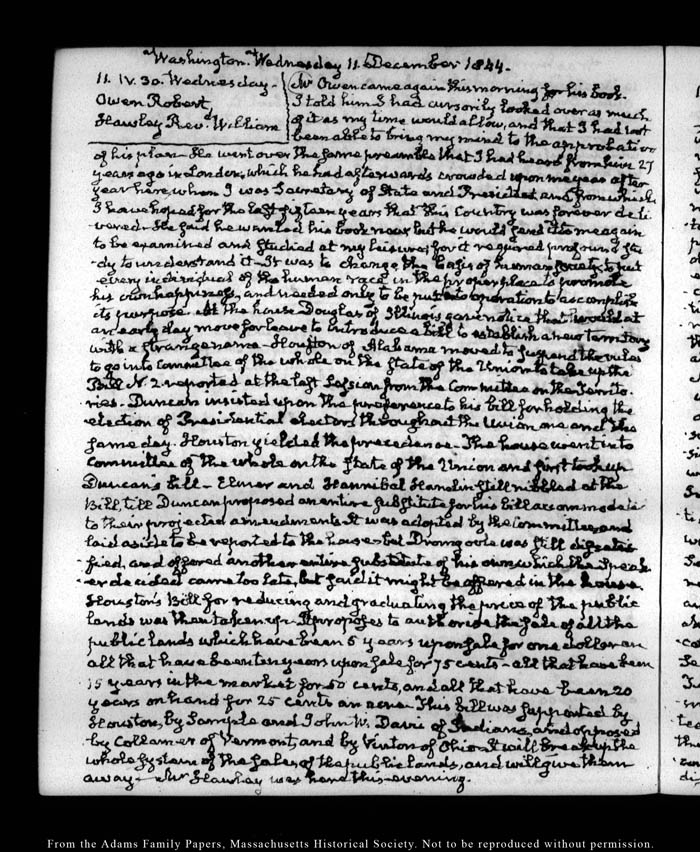 Washington. Wednesday 11. December 1844.
11. IV. 30. Wednesday.
Owen Robert,
Hawley Revd. William
Mr Owen came again this morning for his book.
I told him I had cursorily looked over as much
of it as my time would allow, and that I had not
been able to bring my mind to the approbation
of his plan. He went over the same preamble that I had heard from him 27
years ago in London, which he had afterwards crowded upon me year after
year here when I was Secretary of State and President and from which
I have hoped for the last fifteen years that this Country was forever deli-
vered. He said he wanted his book now, but he would send it to me again
to be examined and studied at my leisure; for it required profound stu-
dy to understand it. It was to change the basis of human society to put
every individual of the human race in the proper place to promote
his own happiness, and needed only to be put into operation to accomplish
its purpose. At the house Douglas of Illinois gave notice that he would at
an early day move for leave to introduce a bill to establish a new Territory
with a strange name. Houston of Alabama moved to suspend the rules
to go into Committee of the whole on the state of the Union to take up the
Bill N. 2 reported at the last Session from the Committee on the Territo-
ries. Duncan insisted upon the preference to his bill for holding the
election of Presidential electors throughout the Union one and the
same day. Houston yielded the precedence. The house went into
Committee of the whole on the state of the Union and first took up
Duncan's bill. Elmer and Hannibal Hamlin still nibbled at the
Bill, till Duncan proposed an entire substitute for his bill accommodated
to their projected amendments. It was adopted by the Committee and
laid aside to be reported to the house. but Dromgoole was still dissatis-
fied, and offered another entire substitute of his own which the Speak-
er decided came too late, but said it might be offered in the house.
Houston's Bill for reducing and graduating the price of the public
lands was then taken up. It proposes to authorise the sale of all the
public lands which have been 5 years upon sale for one dollar an
all that have been ten years upon sale for 75 cents - all that have been
15 years in the market for 50 cents, and all that have been 20
years on hand for 25 cents an acre. This bill was supported by
Houston, by Sample and John W. Davis of Indiana, and opposed
by Collamer of Vermont, and by Vinton of Ohio. It will break up the
whole system of the sales of the public lands, and will give them
away. Mr Hawley was here this evening.
From the Adams Family Papers, Massachusetts Historical Society. Not to be reproduced without permission.